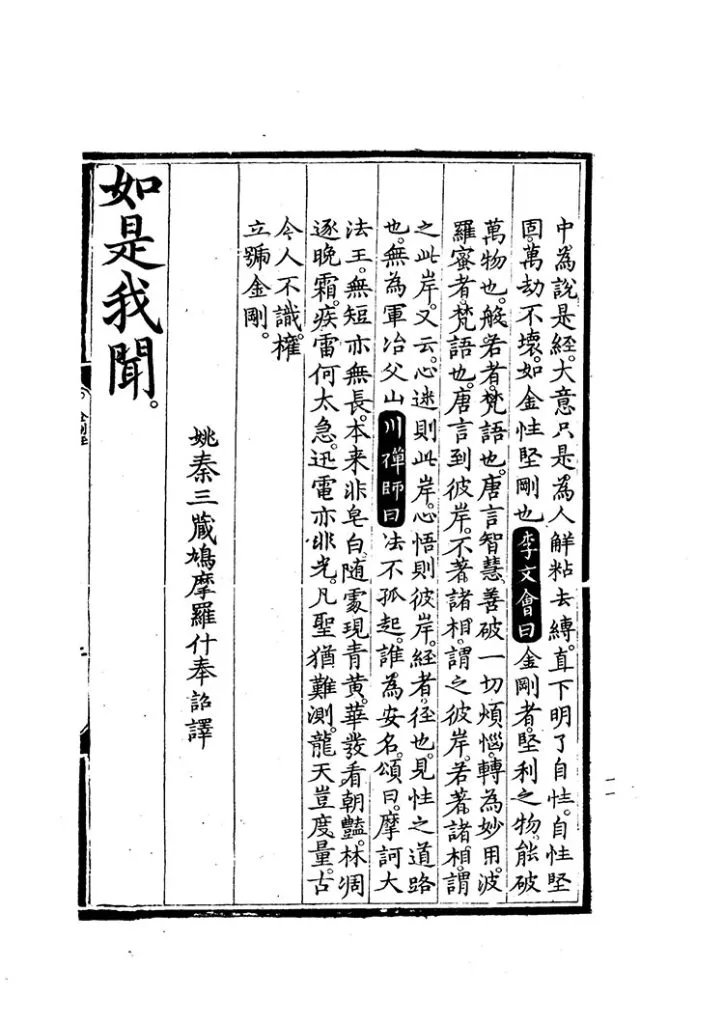 中為說是經。大意只是為人解粘去縛。直下明了自性。自性堅
固。萬劫不壞。如金性堅剛也 李文會曰 金剛者。堅利之物。能破
萬物也。般若者。梵語也。唐言智慧。善破一切煩惱。轉為妙用。波
羅蜜者。梵語也。唐言到彼岸。不著諸相。謂之彼岸。若著諸相。謂
之此岸。又云。心迷則此岸。心悟則彼岸。經者。徑也。見性之道路
也。無為軍冶父山 川禪師曰 法不孤起。誰為安名。頌曰。摩訶大
法王。無短亦無長。本来非皂白。随處現青黃。華發看朝豔。林凋
逐晚霜。疾雷何太急。迅電亦非光。凡聖猶難測。龍天豈度量。古
今人不識。權
立號金剛。
姚秦三藏鳩摩羅什奉詔譯
如是我聞。